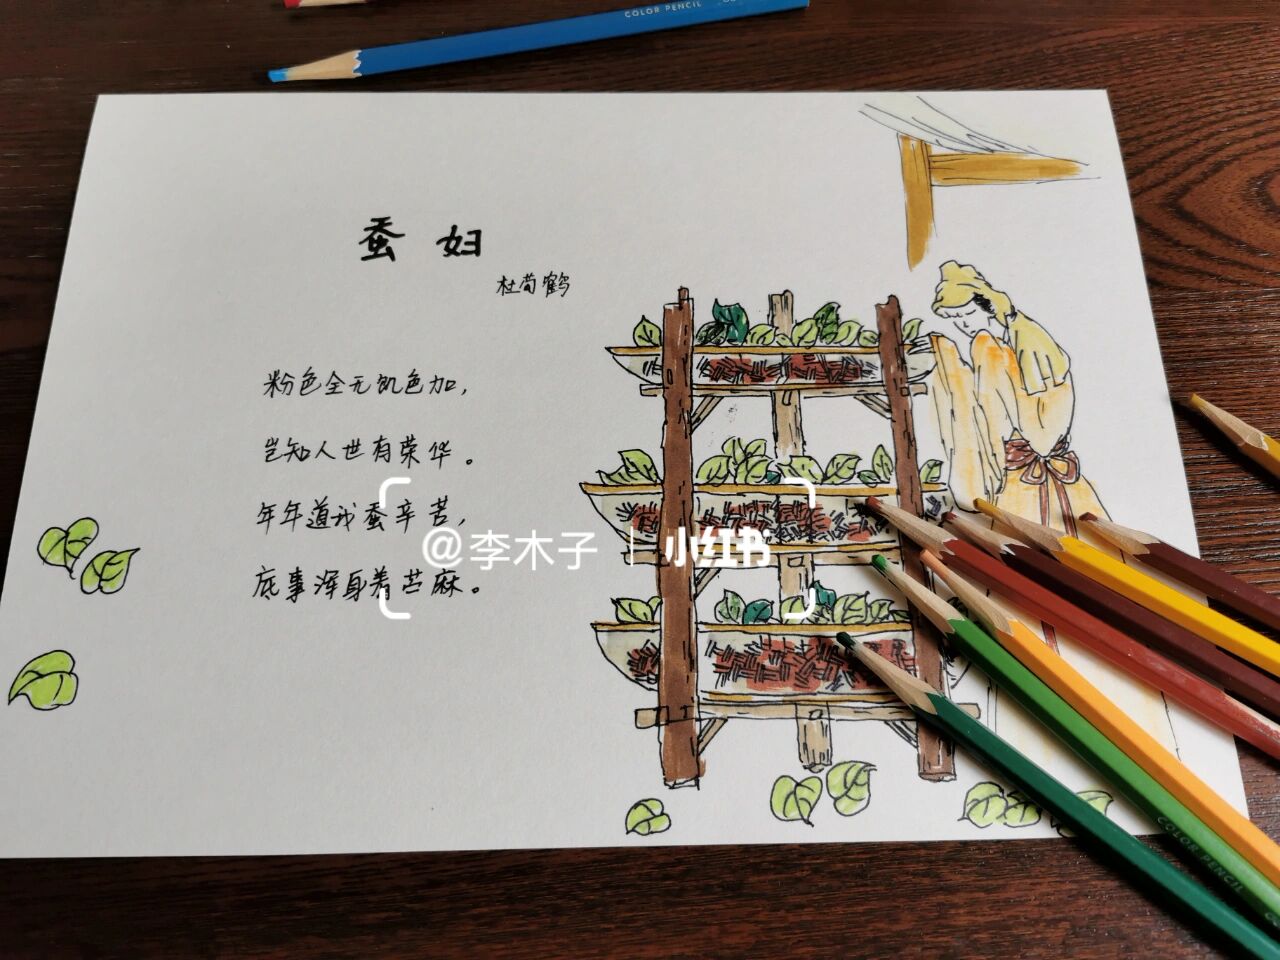 COLOR PENCIL
蚕妇
杜荀鹤
粉色全无饥色加，
岂知人世有荣华。
年年道我蚕辛苦，
底事浑身着苎麻。
@李木子 | 小红书
COLOR PENCIL